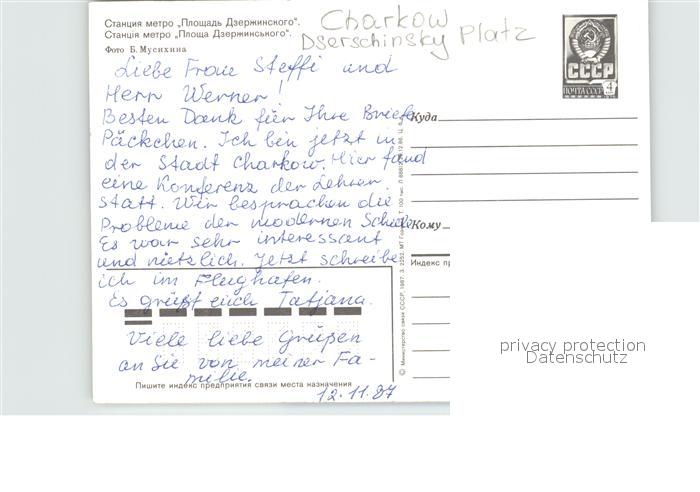 Станция метро „Площадь Дзержинского".
Станція метро „Площа Дзержинського".
Фото Б. Мусихина
Charkow
Dserschinsky Platz
СССР
ПОЧТА СССР
4
Liebe Frau Steffi und
Herr Werner!
Besten Dank für Ihre Briefe
Päckchen. Ich bin jetzt in
der Stadt Charkow. Hier fand
eine Konferenz der Lehrer
statt. Wir besprachen die
Probleme der modernen Schule.
Es war sehr interessant
und nützlich. Jetzt schreibe
ich im Flughafen.
Es grüßt euch Tatjana.
Viele liebe Grüßen
an Sie von meiner Fa-
milie.
12.11.87
Куда
Кому
Индекс пр
Пишите индекс предприятия связи места назначения
© Министерство связи СССР, 1987.
privacy protection
Datenschutz